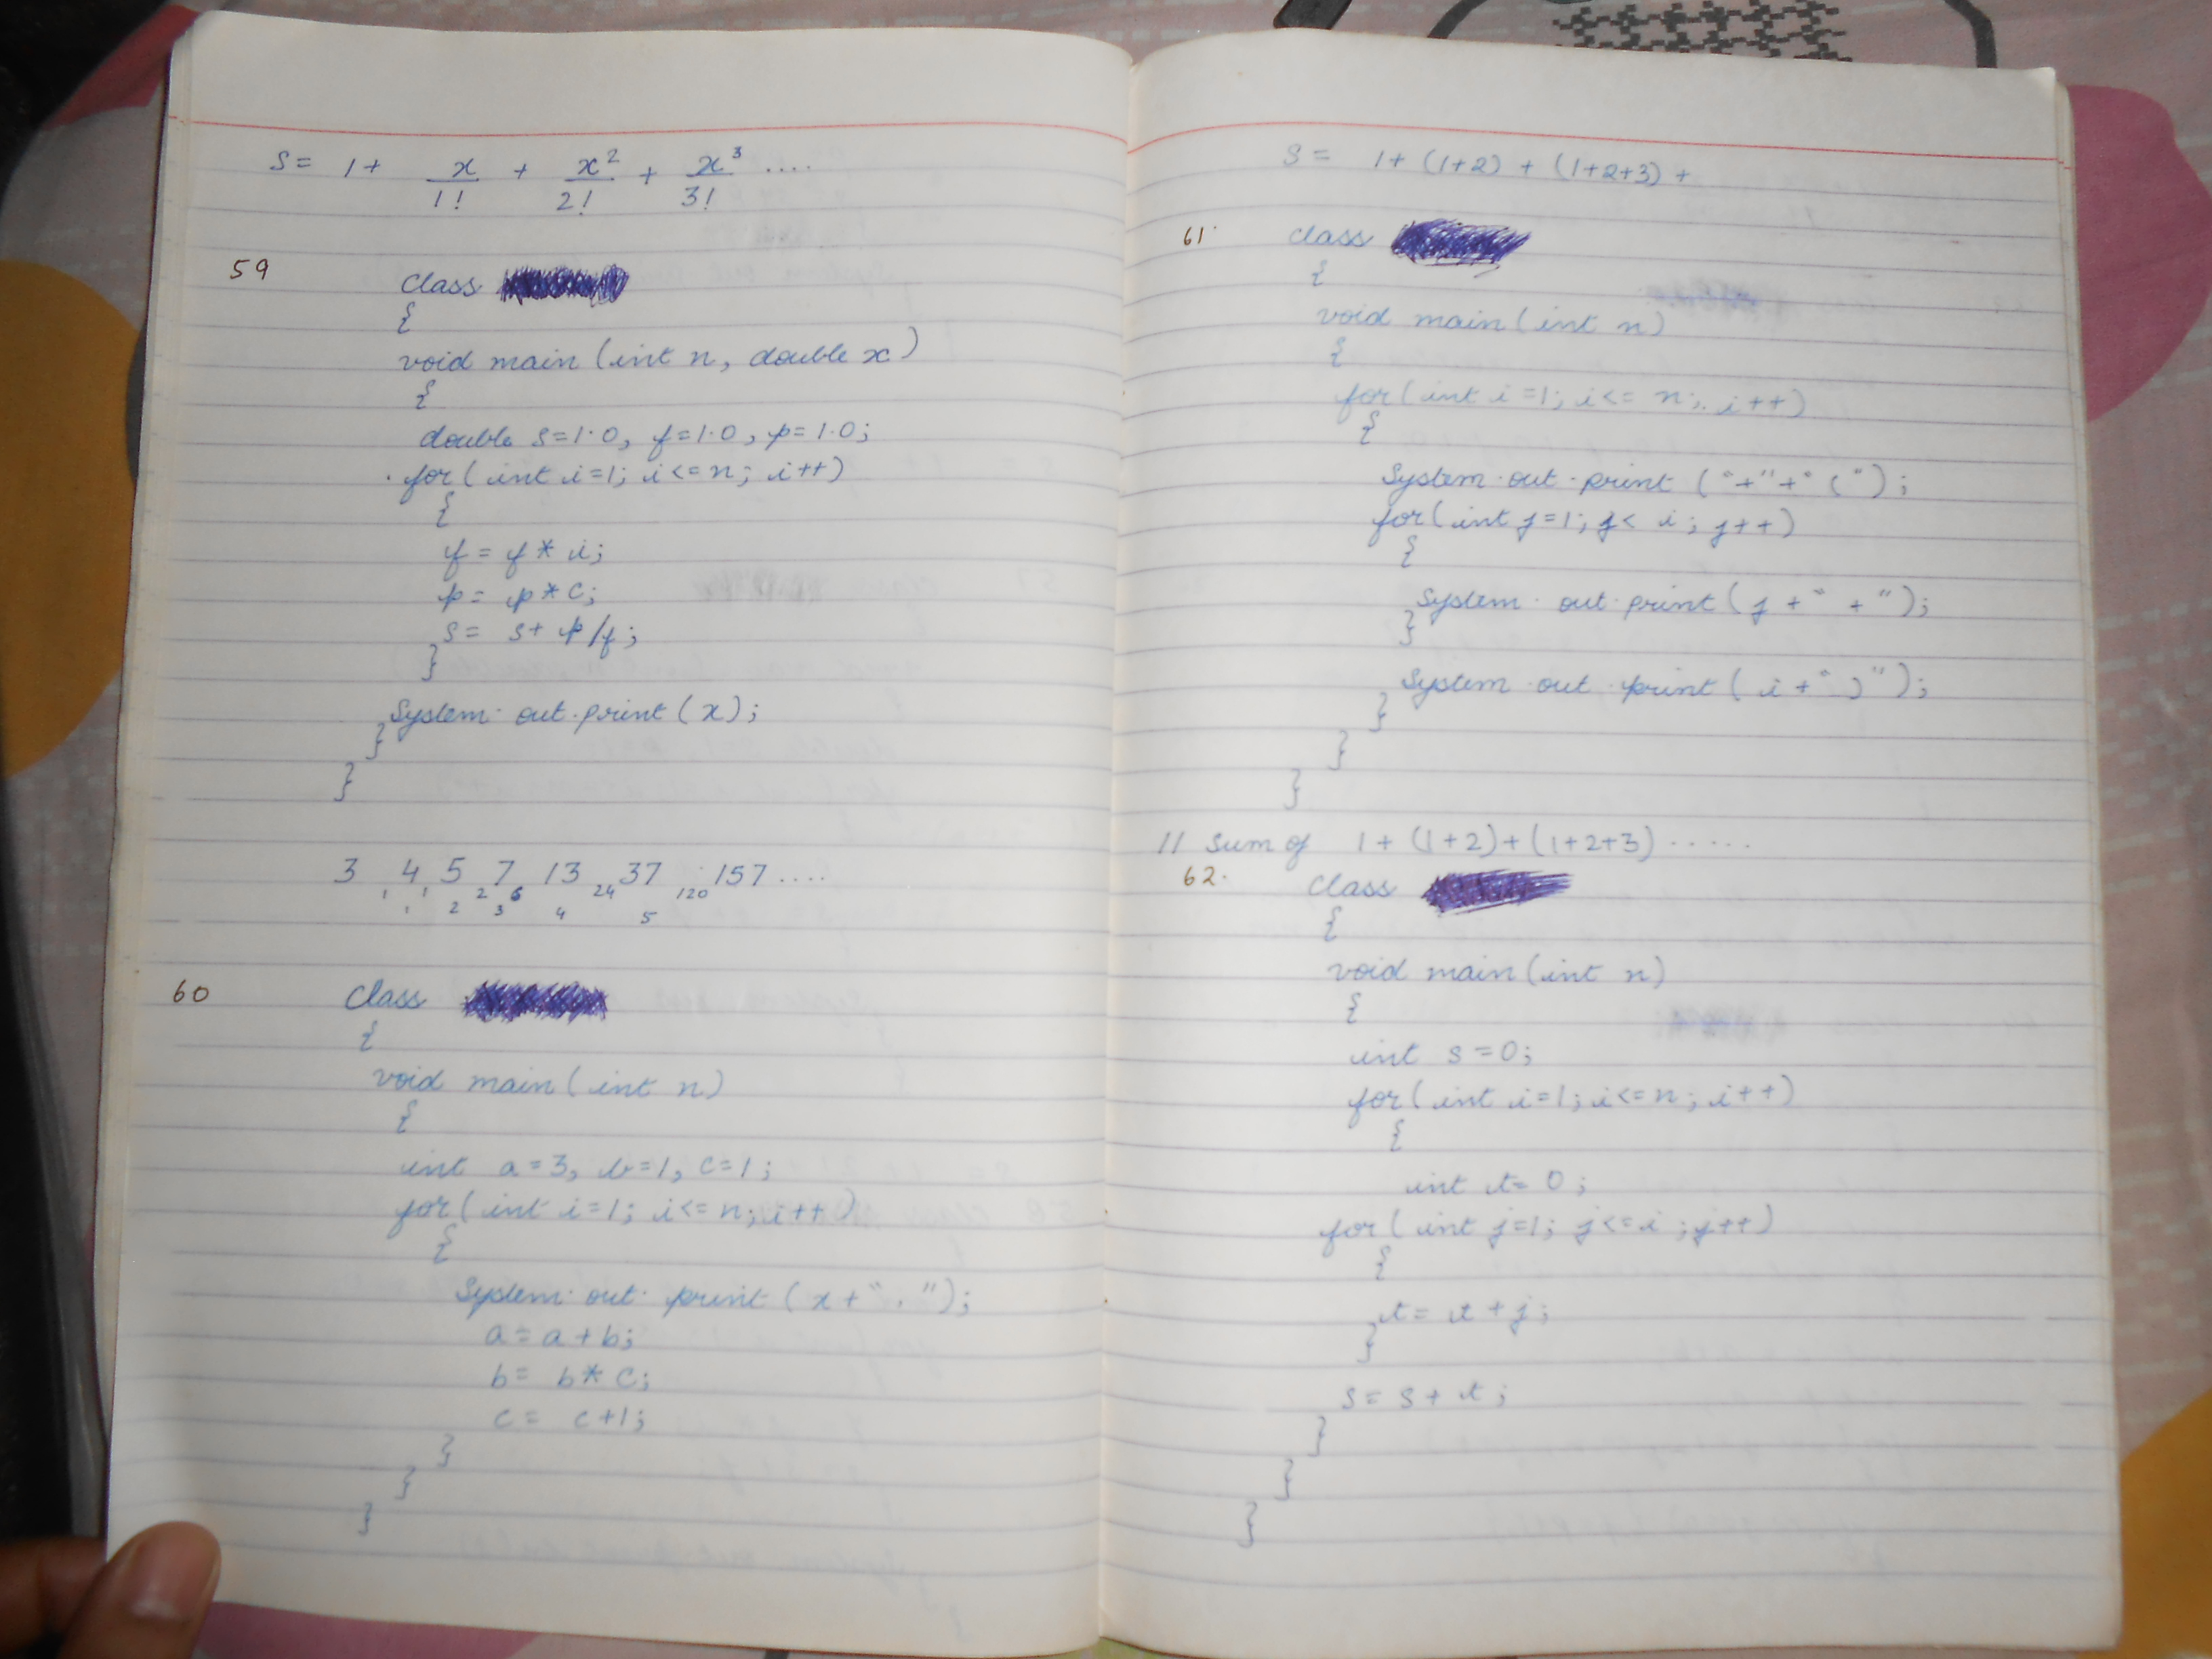 S = 1 + x/1! + x²/2! + x³/3! ....
59
class
{
void main (int n, double x)
{
double s=1.0, f=1.0, p=1.0;
for( int i=1; i<=n; i++)
{
f = f * i;
p = p * c;
s = s + p/f;
}
System.out.print (x);
}
}
3 4 5 7 13 37 157 ....
1 1 2 6 24 120
1 2 3 4 5
60 class
{
void main (int n)
{
int a=3, b=1, c=1;
for( int i=1; i<=n; i++)
{
System.out.print ( x + " , ");
a = a + b;
b = b * c;
c = c+1;
}
}
}
S = 1+ (1+2) + (1+2+3) +
61. class
{
void main (int n)
{
for( int i=1; i<= n; i++)
{
System.out.print ( "+"+" ( ");
for( int j=1; j< i ; j++)
{
System.out.print ( j + " + ");
}
System.out.print ( i + " ) ");
}
}
}
// Sum of 1+ (1+2)+(1+2+3) .....
62. class
{
void main (int n)
{
int s=0;
for( int i=1; i<=n; i++)
{
int t= 0 ;
for( int j=1; j<=i ; j++)
{
t= t + j;
}
s= s + t ;
}
}
}